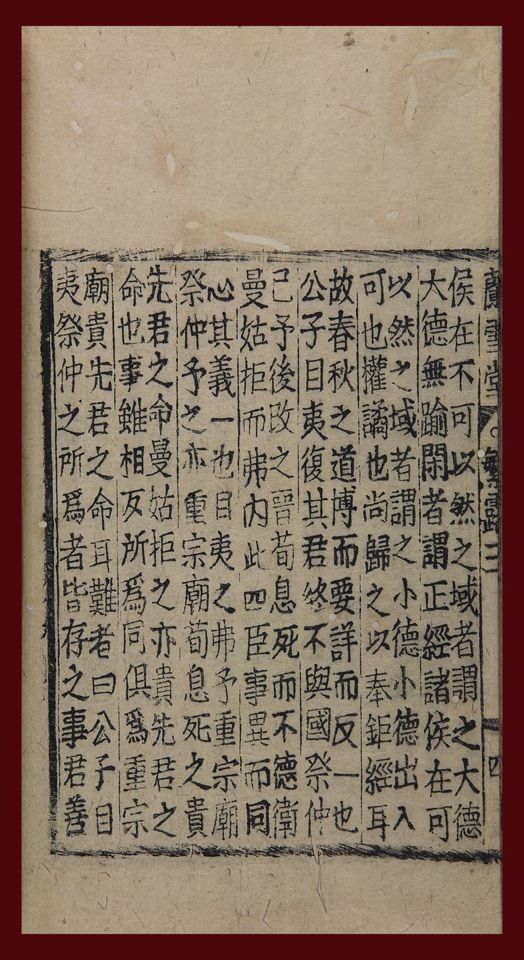 蘭雪堂
繁露二
四
侯在不可以然之域者謂之大德
大德無踰閑者謂正經諸侯在可
以然之域者謂之小德小德出入
可也權譎也尚歸之以奉鉅經耳
故春秋之道博而要詳而反一也
公子目夷復其君終不與國祭仲
己予後改之晉荀息死而不德衛
曼姑拒而弗内此四臣事異而同
心其義一也目夷之弗予重宗廟
祭仲予之亦重宗廟荀息死之貴
先君之命曼姑拒之亦貴先君之
命也事雖相反所爲同俱爲重宗
廟貴先君之命耳難者曰公子目
夷祭仲之所爲者皆存之事君善